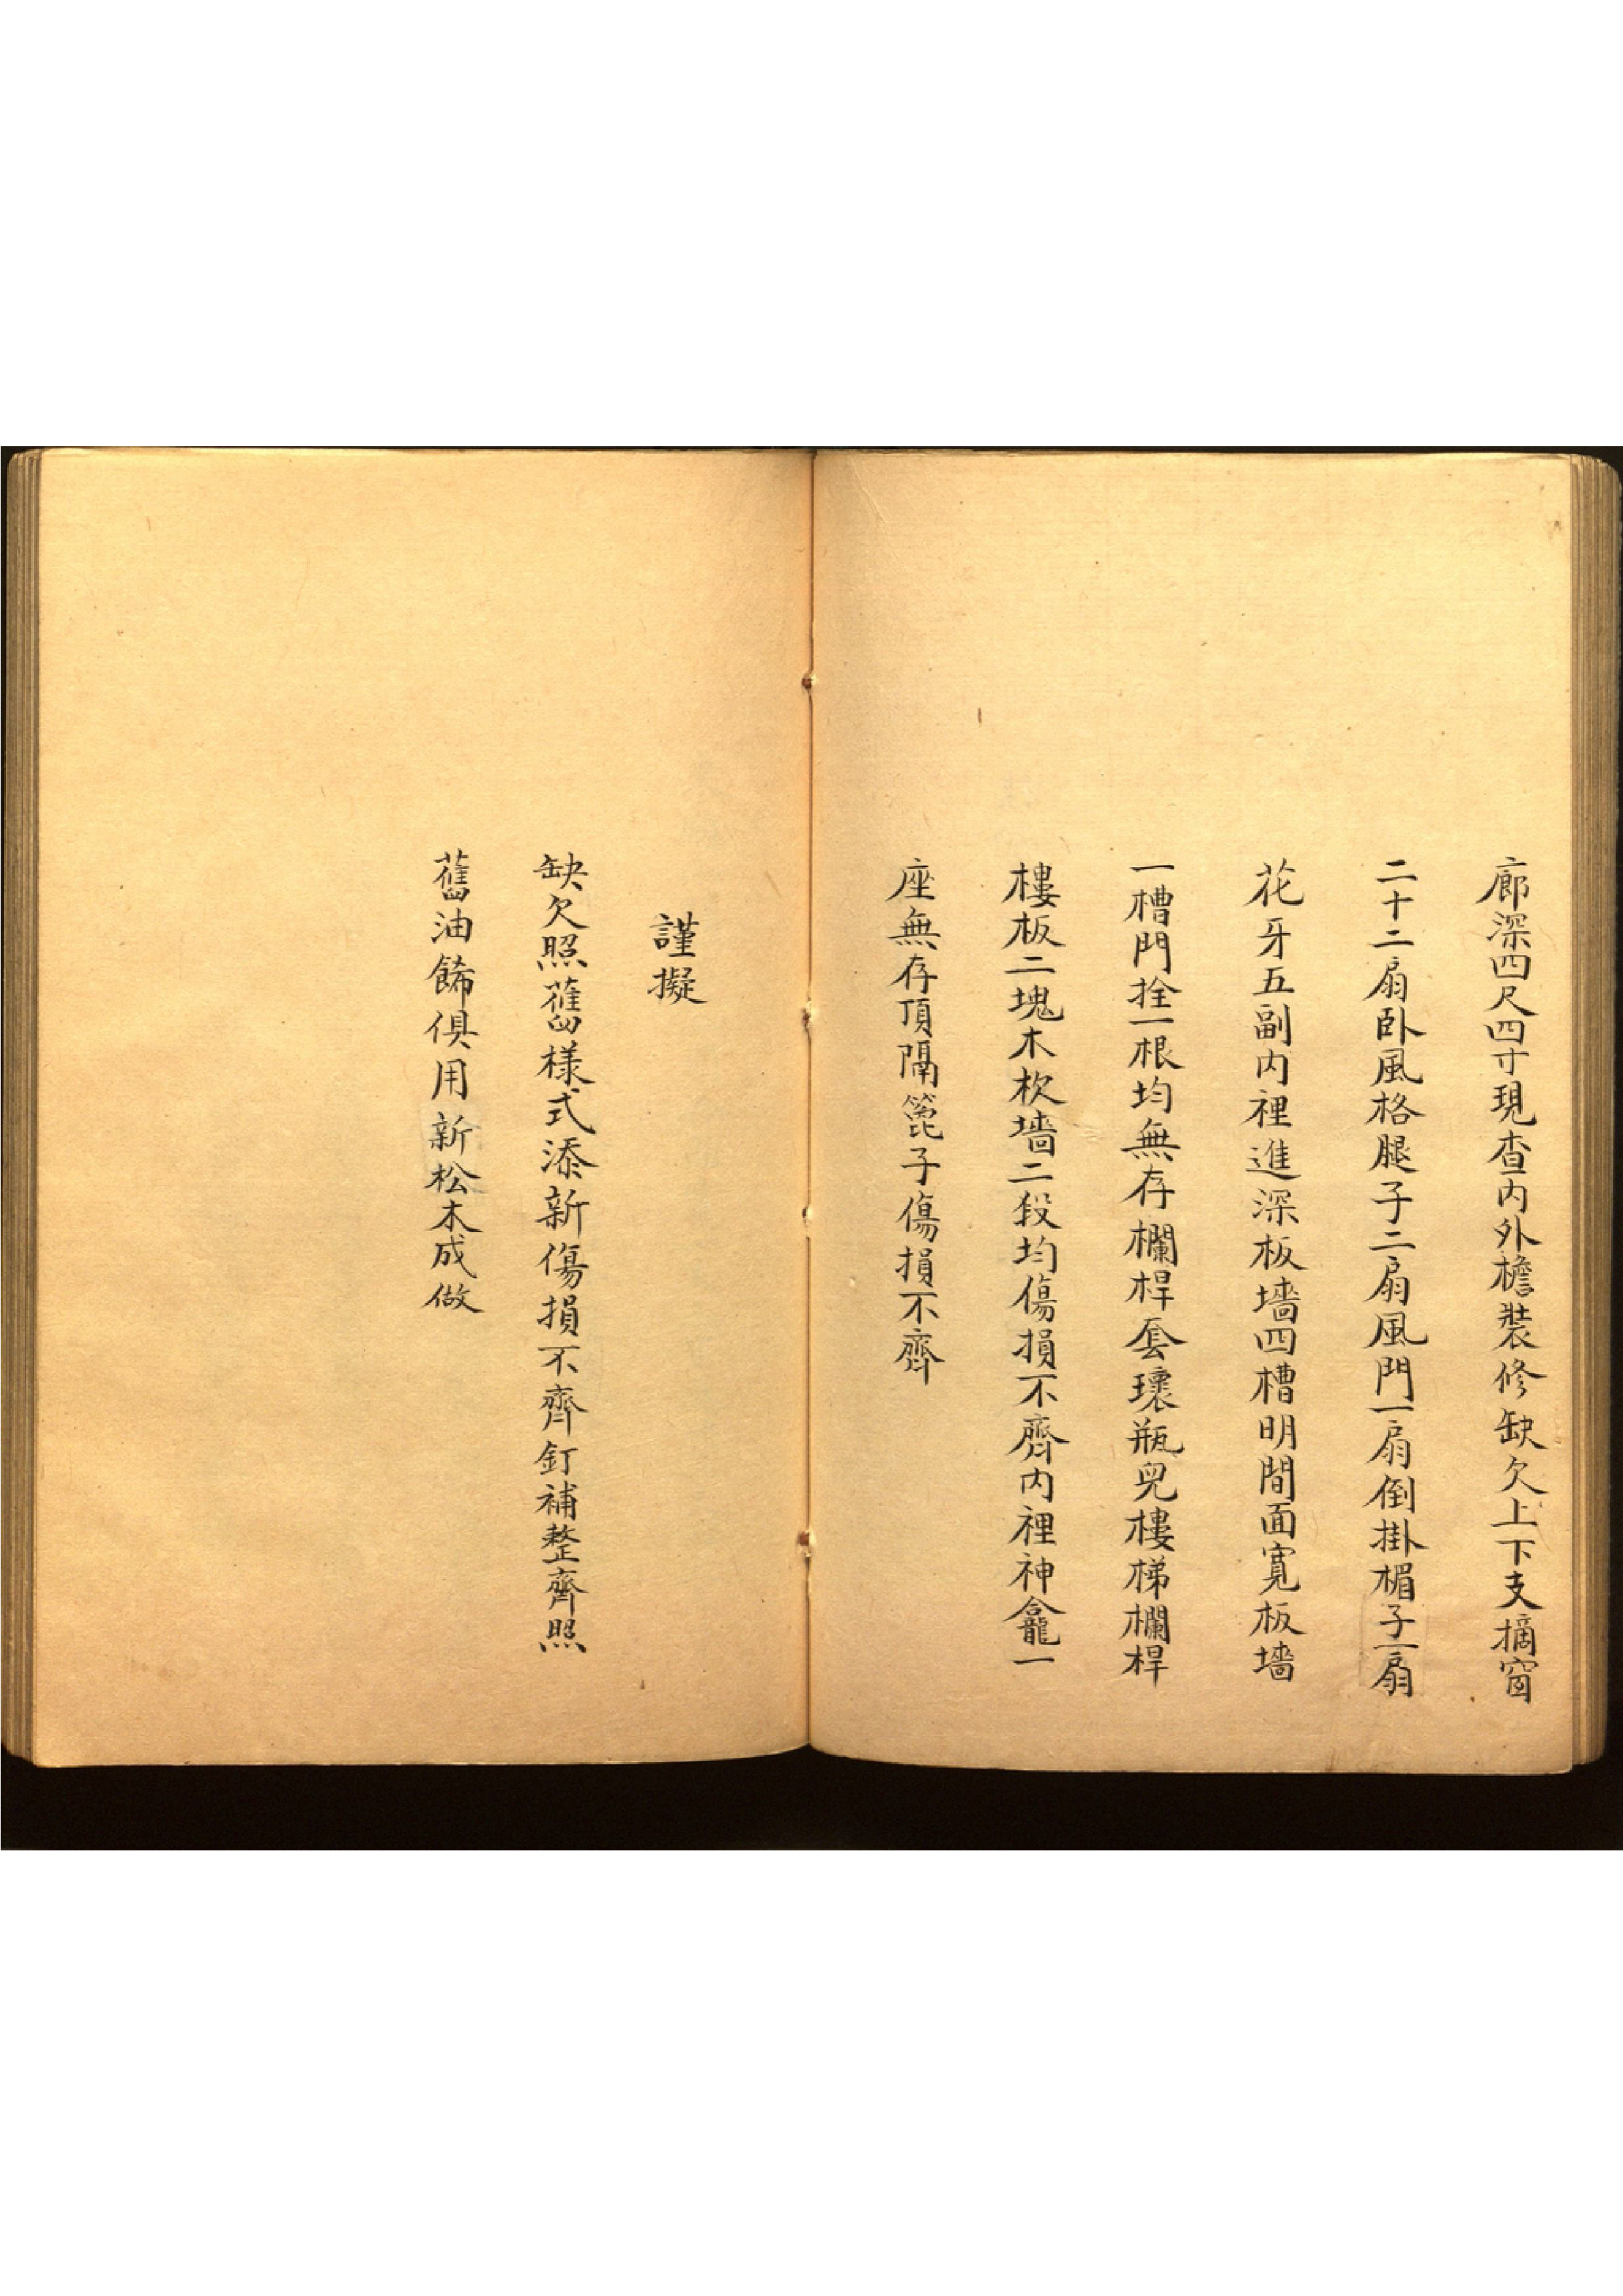 廊深四尺四寸現查内外檐裝修缺欠上下支摘窗
二十二扇卧風格腿子二扇風門一扇倒掛楣子一扇
花牙五副内裡進深板墻四槽明間面寬板墻
一槽門拴一根均無存欄桿套瓌瓶兒樓梯欄桿
樓板二塊木杴墻二段均傷損不齊内裡神龕一
座無存頂隔篦子傷損不齊
謹擬
缺欠照舊樣式添新傷損不齊釘補整齊照
舊油餙俱用新松木成做